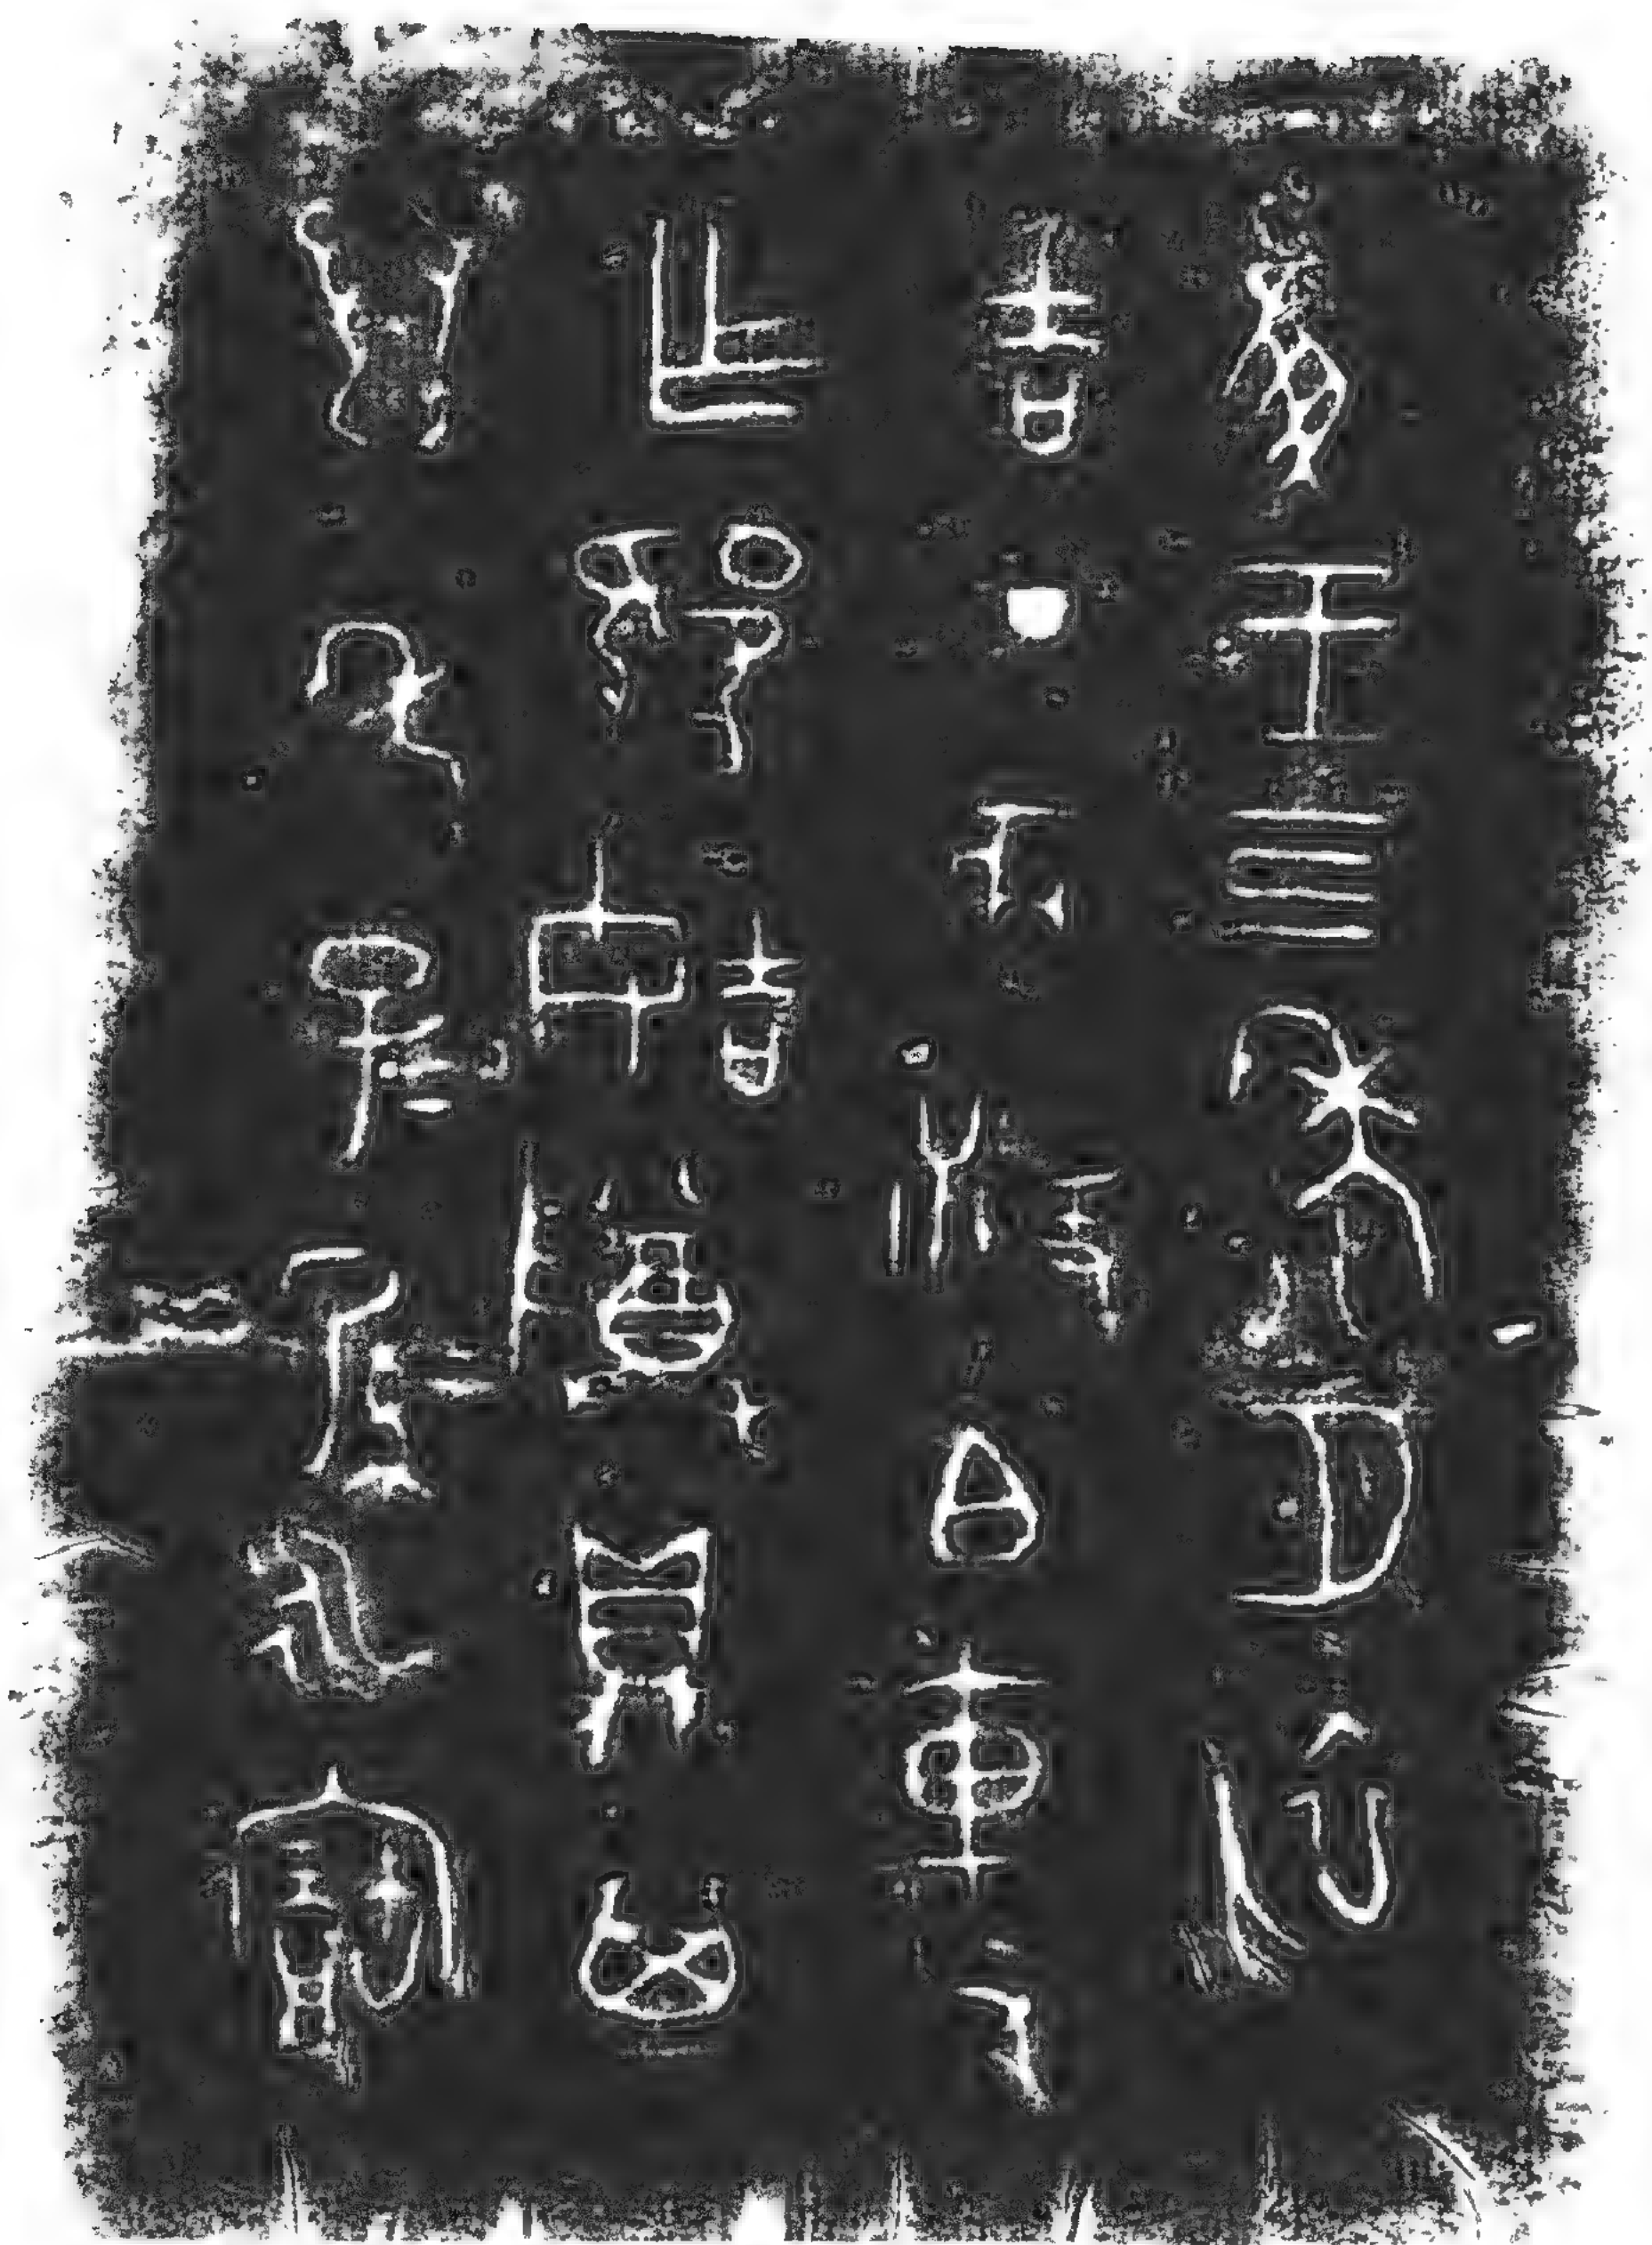 隹王亖年八月初
吉丁亥散白車父
乍姞尊鼎其
萬年子=孫=永寶